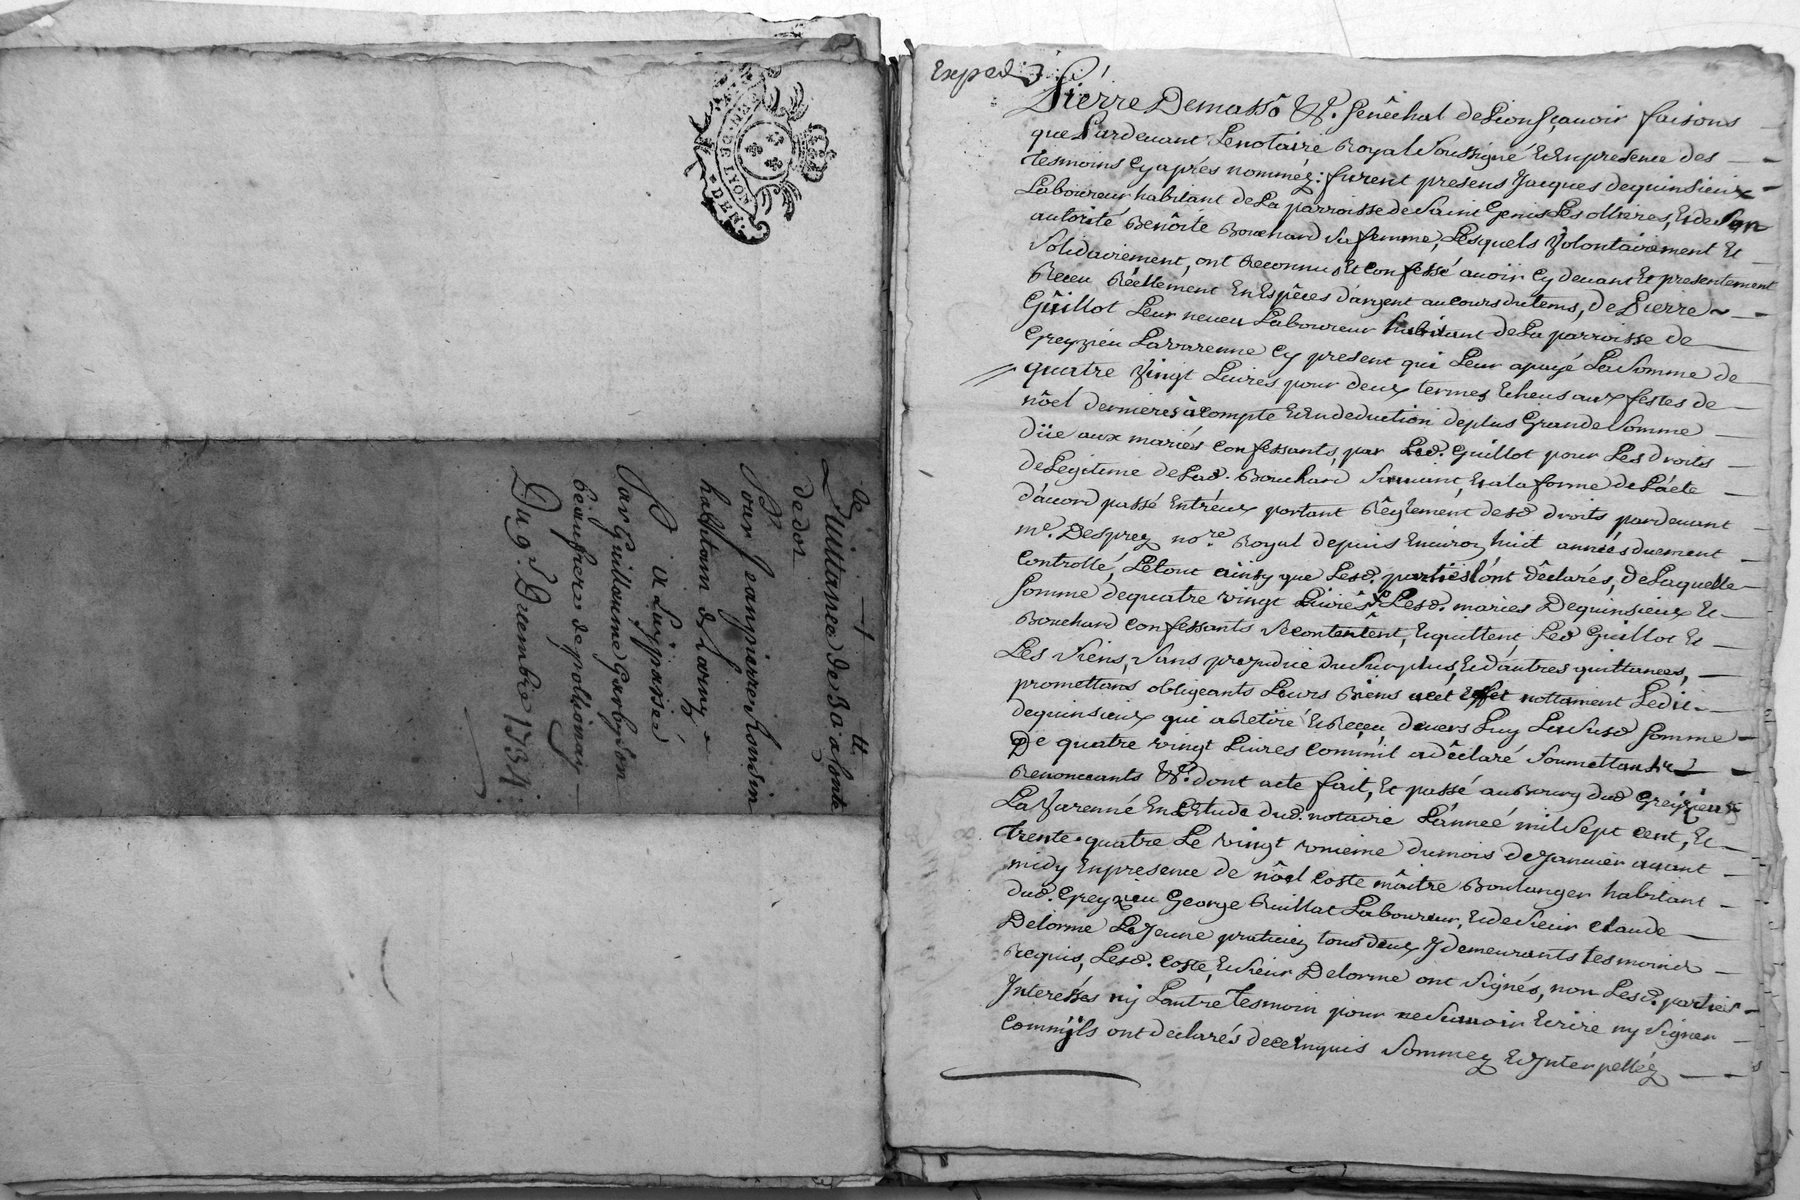 GEN. DE LYON
DEN.
Quittance de
de dot
Pour Jeanpierre Rondin
habitant de
à Luy passée
Par Guillaume Garbython
beaufrere de pollionay
Du 9.e Decembre 1734.
Exped.
Pierre Demasso &c. senêchal de Lion sçavoir faisons
que Pardevant Le notaire Royal soussigné Et En presence des
tesmoins Cy aprés nomméz: furent presens Jacques dequinsieux
Laboureur habitant de La parroisse de Saint Genis Les ollieres, Et de Son
autorité Benôite Bouchard sa femme, Lesquels Volontairement Et
Solidairement, ont Reconnu Et Confessé avoir Cy devant Et presentement
Receu Réellement En Espêces d'argent au cours du tems, de Pierre
Guillot Leur neveu Laboureur habitant de La parroisse de
Greyzieu Lavarenne Cy present qui Leur a payé La Somme de
quatre Vingt Livres pour deux termes Echeus aux festes de
nôel dernieres à compte Et En deduction de plus Grande Somme
düe aux mariés confessants, par Led. Guillot pour Les droits
de Legitime de Lad. Bouchard suivant, Et a la forme de L'acte
d'acord passé Entréux portant Rêglement desd. droits pardevant
m.e Desprez no.re Royal depuis Environ huit années duement
Controllé, Le tout ainsy que Lesd. parties L'ont dêclarés, de Laquelle
Somme de quatre vingt Livres Lesd. maries Dequinsieux Et
Bouchard confessants se contentent, Et quittent Led Guillot Et
Les Siens, Sans prejudice du Surplus, Et d'autres quittances,
promettans obligeants Leurs Biens a cet Effet nottament Ledit
dequinsieux qui a Retiré Et Receu devers Luy La Susd Somme
De quatre vingt Livres comm'il a dêclaré Soumettants
Renonceants &c. dont acte fait, Et passé au Bourg dud Greyzieux
La Varenne En L'Etude dud. notaire L'année mil Sept cent, Et
trente-quatre Le vingt unieme du mois de Janvier avant
midy En presence de nôel Coste mâitre Boulanger habitant
dud. Greyzieu George Ruillat Laboureur, Et de Sieur Claude
Delorme Le Jeune praticien tous deux Y demeurants tesmoins
Requis, Lesd. Coste, Et Sieur Delorme ont Signés, non Lesd. parties
Interessées ny L'autre tesmoin pour ne Savoir Ecrire ny Signer
comm'ils ont declarés de ce Enquis Sommez Et Interpelléz